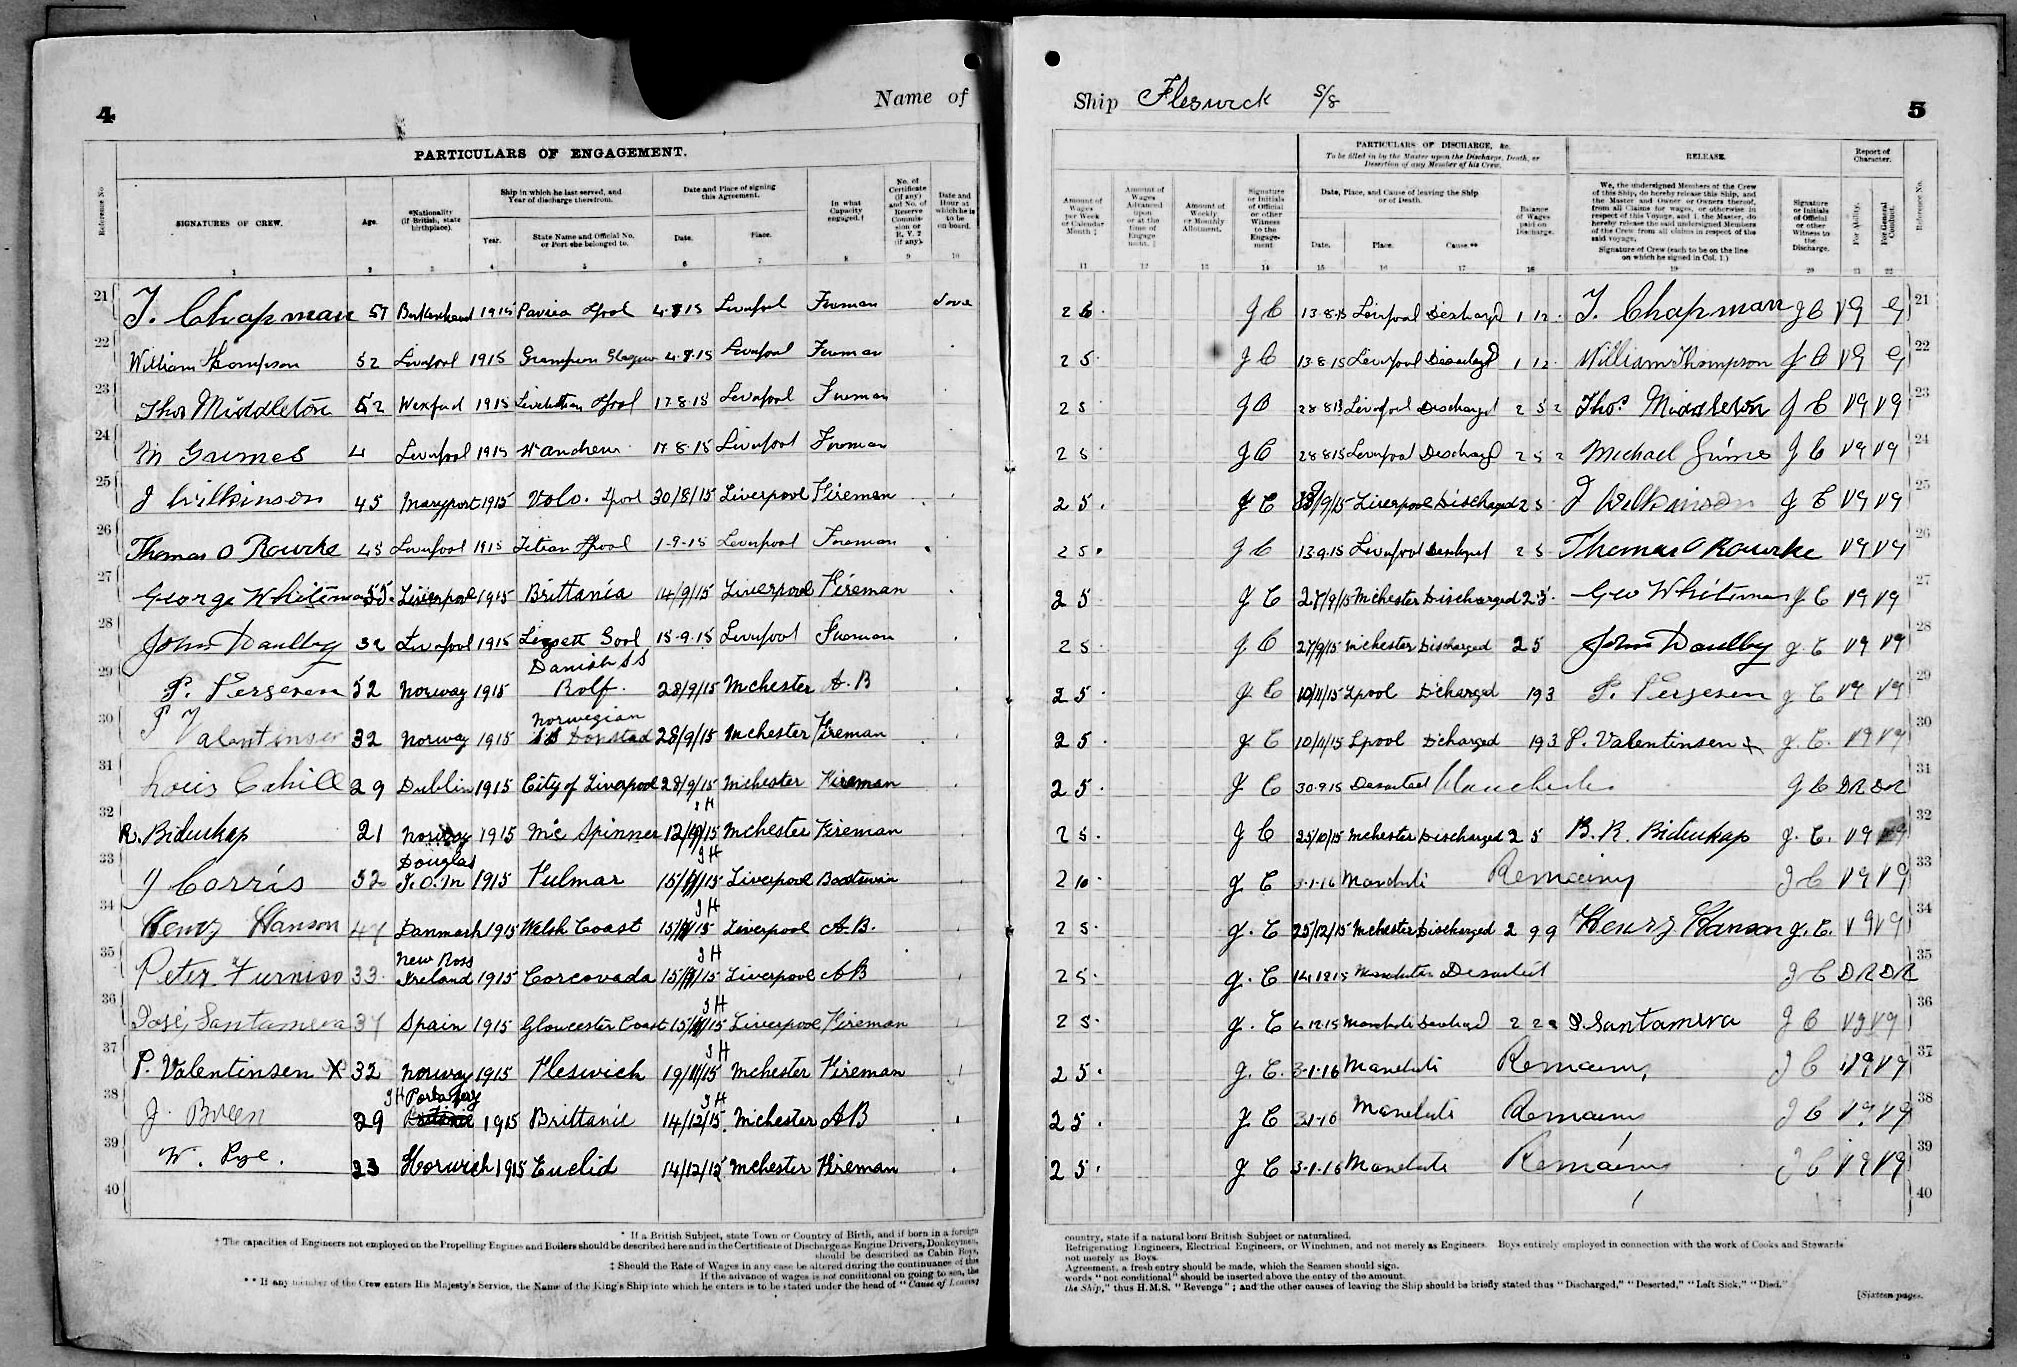 4
Name of
PARTICULARS OF ENGAGEMENT.
Reference No
SIGNATURES OF CREW.
Age.
*Nationality (If British, state birthplace).
Ship in which he last served, and Year of discharge therefrom.
Year.
State Name and Official No. or Port she belonged to.
Date and Place of signing this Agreement.
Date.
Place.
In what Capacity engaged.†
No. of Certificate (if any) and No. of Reserve Commission or R.V. 2 (if any).
Date and Hour at which he is to be on board.
1 2 3 4 5 6 7 8 9 10
21 T. Chapman 57 Birkenhead 1915 Lpool 4.8.15 Liverpool Fireman
22 William Thompson 52 Liverpool 1915 Grampian Glasgow 4.8.15 Liverpool Fireman
23 Thos Middleton 52 Wexford 1915 Lpool 17.8.15 Liverpool Fireman
24 M Grimes 4 Liverpool 1915 17.8.15 Liverpool Fireman
25 J Wilkinson 45 Maryport 1915 Volo. Lpool 30/8/15 Liverpool Fireman
26 Thomas O Rourke 45 Liverpool 1915 Titian Lpool 1-9-15 Liverpool Fireman
27 George Whiteman 55. Liverpool 1915 Brittania 14/9/15 Liverpool Fireman
28 John Daulby 32 Liverpool 1915 15-9-15 Liverpool Fireman
29 P. Pergesen 52 Norway 1915 Danish SS Rolf. 28/9/15 Mchester A.B
30 P Valentinsen 32 Norway 1915 Norwegian SS 28/9/15 Mchester Fireman
31 Louis Cahill 29 Dublin 1915 City of Liverpool 28/9/15 Mchester Fireman
32 R. Biduskap 21 Norway 1915 Mc Spinner 12/15 JH Mchester Fireman
33 J Corris 52 Douglas I.O.M 1915 Fulmar 15/15 JH Liverpool Boatswain
34 Henry Hanson 47 Danmark 1915 Welsh Coast 15/15 JH Liverpool A.B.
35 Peter Furniss 33 New Ross Ireland 1915 Corcovada 15/15 JH Liverpool AB
36 José Santamera 37 Spain 1915 Gloucester Coast 15/15 JH Liverpool Fireman
37 P. Valentinsen X 32 Norway 1915 Fleswick 19/11/15 JH Mchester Fireman
38 J. Breen 29 JH 1915 Brittanic 14/12/15 JH Mchester AB
39 W. Pye. 23 Horwich 1915 Euclid 14/12/15 Mchester Fireman
40
* If a British Subject, state Town or Country of Birth, and if born in a foreign
† The capacities of Engineers not employed on the Propelling Engines and Boilers should be described here and in the Certificate of Discharge as Engine Drivers, Donkeymen,
should be described as Cabin Boys,
‡ Should the Rate of Wages in any case be altered during the continuance of this
If the advance of wages is not conditional on going to sea, the
** If any member of the Crew enters His Majesty's Service, the Name of the King's Ship into which he enters is to be stated under the head of "Cause of Leaving
Ship Fleswick S/S
5
Amount of Wages per Week or Calendar Month ‡
Amount of Wages Advanced upon or at the time of Engagement. ‡
Amount of Weekly or Monthly Allotment.
Signature or Initials of Official or other Witness to the Engagement
PARTICULARS OF DISCHARGE, &c.
To be filled in by the Master upon the Discharge, Death, or Desertion of any Member of his Crew.
Date, Place, and Cause of leaving the Ship or of Death.
Date.
Place.
Cause **
Balance of Wages paid on Discharge.
RELEASE.
We, the undersigned Members of the Crew of this Ship, do hereby release this Ship, and the Master and Owner or Owners thereof, from all Claims for wages, or otherwise in respect of this Voyage, and I, the Master, do hereby release the said undersigned Members of the Crew from all claims in respect of the said voyage.
Signature of Crew (each to be on the line on which he signed in Col. 1.)
Signature or Initials of Official or other Witness to the Discharge.
Report of Character.
For Ability.
For General Conduct.
Reference No.
11 12 13 14 15 16 17 18 19 20 21 22
2 6. J C 13.8.15 Liverpool Discharged 1 12. T. Chapman J C VG G 21
2 5. J C 13.8.15 Liverpool Discharged 1 12. William Thompson J C VG G 22
2 5 J C 28.8.15 Liverpool Discharged 2 5 2 Thos. Middleton J C VG VG 23
2 5. J C 28.8.15 Liverpool Discharged 2 5 2 Michael Grimes J C VG VG 24
2 5. J C /9/15 Liverpool Discharged 2 5 J Wilkinson J C VG VG 25
2 5. J C 13.9.15 Liverpool Discharged 2 5 Thomas O Rourke VG VG 26
2 5. J C 27/9/15 Mchester Discharged 2 5. Geo Whiteman J C VG VG 27
2 5. J C 27/9/15 Mchester Discharged 2 5 John Daulby J. C VG VG 28
2 5. J C 10/11/15 Lpool Dcharged 19 3 P. Pergesen J C VG VG 29
2 5. J C 10/11/15 Lpool Dcharged 19 3 P. Valentinsen x J. C. VG VG 30
2 5. J C 30.9.15 Deserted Manchester J C DR DR 31
2 5. J C 25/10/15 Mchester Discharged 2 5 B. R. Biduskap J. C. VG VG 32
2 10. J C 3-1-16 Manchester Remains J C VG VG 33
2 5. J. C 25/12/15 Mchester Discharged 2 9 9 Henry Hanson J. C. VG VG 34
2 5. J. C 14.12.15 Manchester Deserted J C DR DR 35
2 5. J. C 4.12.15 Manchester Discharged 2 2 J. Santamera J C VG VG 36
2 5. J. C. 3-1-16 Manchester Remains J C VG VG 37
2 5. J C 3-1-16 Manchester Remains J C VG VG 38
2 5. J C 3-1-16 Manchester Remains J C VG VG 39
40
country, state if a natural born British Subject or naturalized.
Refrigerating Engineers, Electrical Engineers, or Winchmen, and not merely as Engineers. Boys entirely employed in connection with the work of Cooks and Stewards
not merely as Boys.
Agreement, a fresh entry should be made, which the Seamen should sign.
words "not conditional" should be inserted above the entry of the amount.
the Ship," thus H.M.S. "Revenge"; and the other causes of leaving the Ship should be briefly stated thus "Discharged," "Deserted," "Left Sick," "Died."
[Sixteen pages.